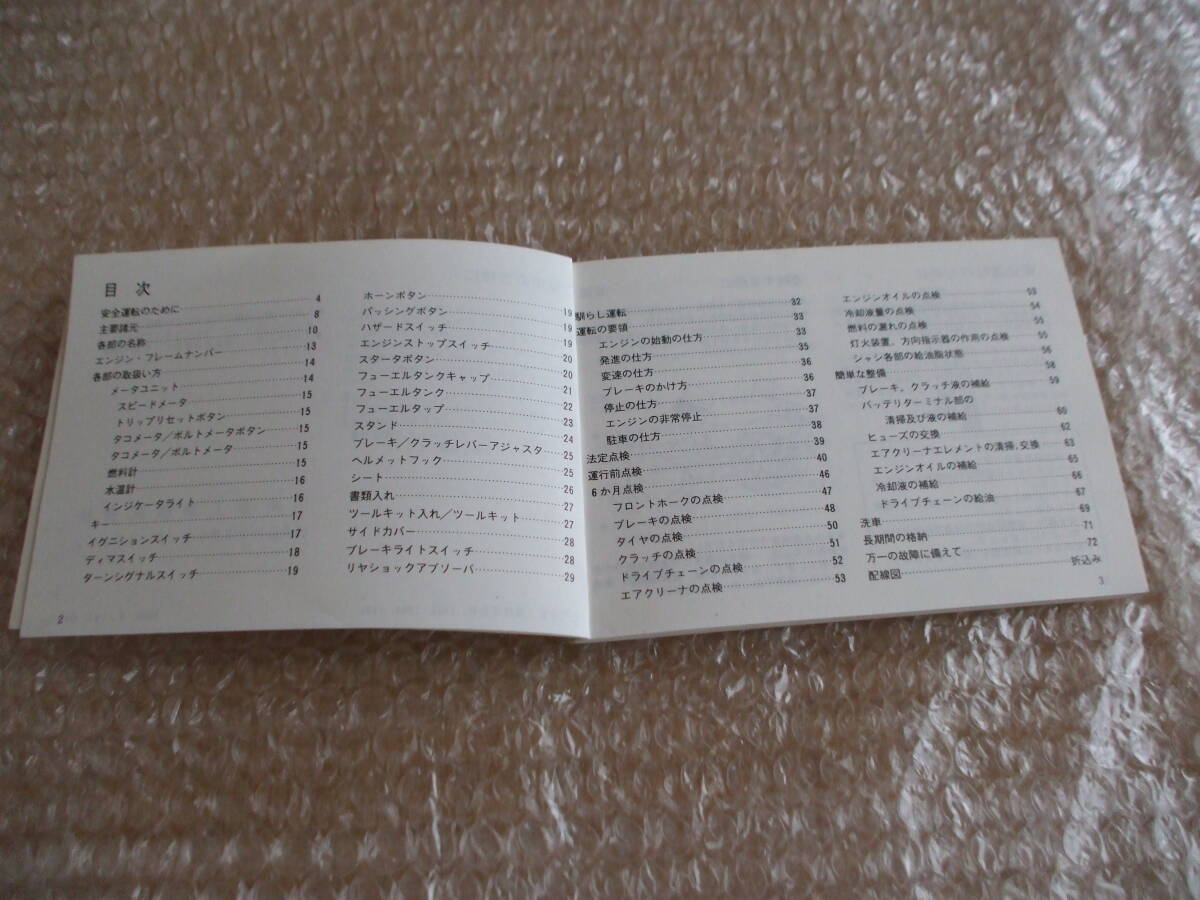 目次
安全運転のために 4
主要諸元 8
各部の名称 10
エンジン・フレームナンバー 13
各部の取扱い方 14
メータユニット 14
スピードメータ 15
トリップリセットボタン 15
タコメータ/ボルトメータボタン 15
タコメータ/ボルトメータ 15
燃料計 15
水温計 16
インジケータライト 16
キー 17
イグニションスイッチ 17
ディマスイッチ 18
ターンシグナルスイッチ 19
ホーンボタン 19
パッシングボタン 19
ハザードスイッチ 19
エンジンストップスイッチ 20
スタータボタン 20
フューエルタンクキャップ 21
フューエルタンク 22
フューエルタップ 23
スタンド 24
ブレーキ/クラッチレバーアジャスタ 25
ヘルメットフック 25
シート 26
書類入れ 27
ツールキット入れ/ツールキット 27
サイドカバー 28
ブレーキライトスイッチ 28
リヤショックアブソーバ 29
2
馴らし運転 32
運転の要領 33
エンジンの始動の仕方 33
発進の仕方 35
変速の仕方 36
ブレーキのかけ方 36
停止の仕方 37
エンジンの非常停止 37
駐車の仕方 38
法定点検 39
運行前点検 40
6か月点検 46
フロントホークの点検 47
ブレーキの点検 48
タイヤの点検 50
クラッチの点検 51
ドライブチェーンの点検 52
エアクリーナの点検 53
エンジンオイルの点検 53
冷却液量の点検 54
燃料の漏れの点検 55
灯火装置、方向指示器の作用の点検 55
シャシ各部の給油脂状態 56
簡単な整備 58
ブレーキ、クラッチ液の補給 59
バッテリターミナル部の
清掃及び液の補給 60
ヒューズの交換 62
エアクリーナエレメントの清掃、交換 63
エンジンオイルの補給 65
冷却液の補給 66
ドライブチェーンの給油 67
洗車 69
長期間の格納 71
万一の故障に備えて 72
配線図 折込み
3